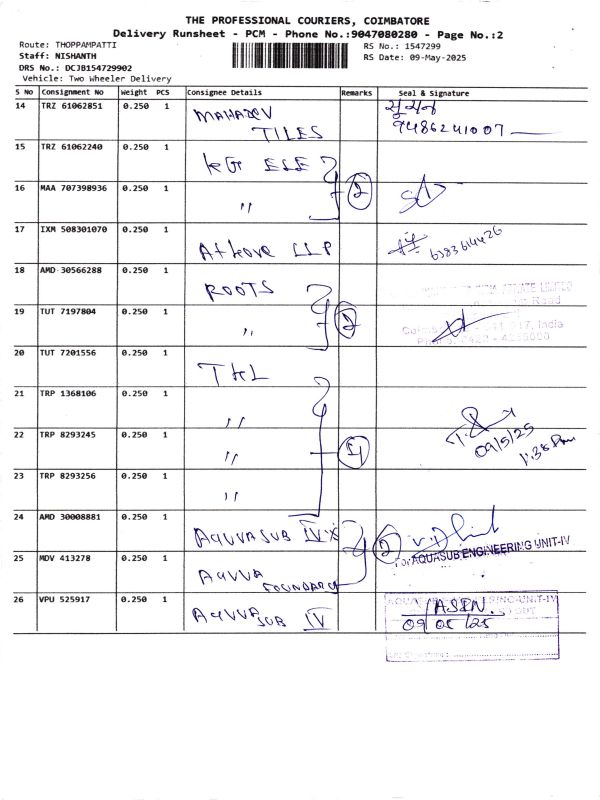 THE PROFESSIONAL COURIERS, COIMBATORE
Delivery Runsheet - PCM - Phone No.:9047080280 - Page No.:2
Route: THOPPAMPATTI
RS No.: 1547299
Staff: NISHANTH
RS Date: 09-May-2025
DRS No.: DCJB154729902
Vehicle: Two Wheeler Delivery
S No Consignment No Weight PCS Consignee Details Remarks Seal & Signature
14 TRZ 61062851 0.250 1 MAHADEV TILES
9486241007
15 TRZ 61062240 0.250 1 KG ESE
16 MAA 707398936 0.250 1 " 2
17 IXM 508301070 0.250 1 LLP 6383614426
18 AMD 30566288 0.250 1 ROOTS
19 TUT 7197804 0.250 1 " 2
Road
India
20 TUT 7201556 0.250 1
21 TRP 1368106 0.250 1 "
22 TRP 8293245 0.250 1 " 4 09/5/25 1.38 Pm
23 TRP 8293256 0.250 1 "
24 AMD 30008881 0.250 1 AQUVASUB IV 2
For AQUASUB ENGINEERING UNIT-IV
25 MDV 413278 0.250 1 AQUVA FOUNDARY
26 VPU 525917 0.250 1 AQUVA SUB IV
09/05/25